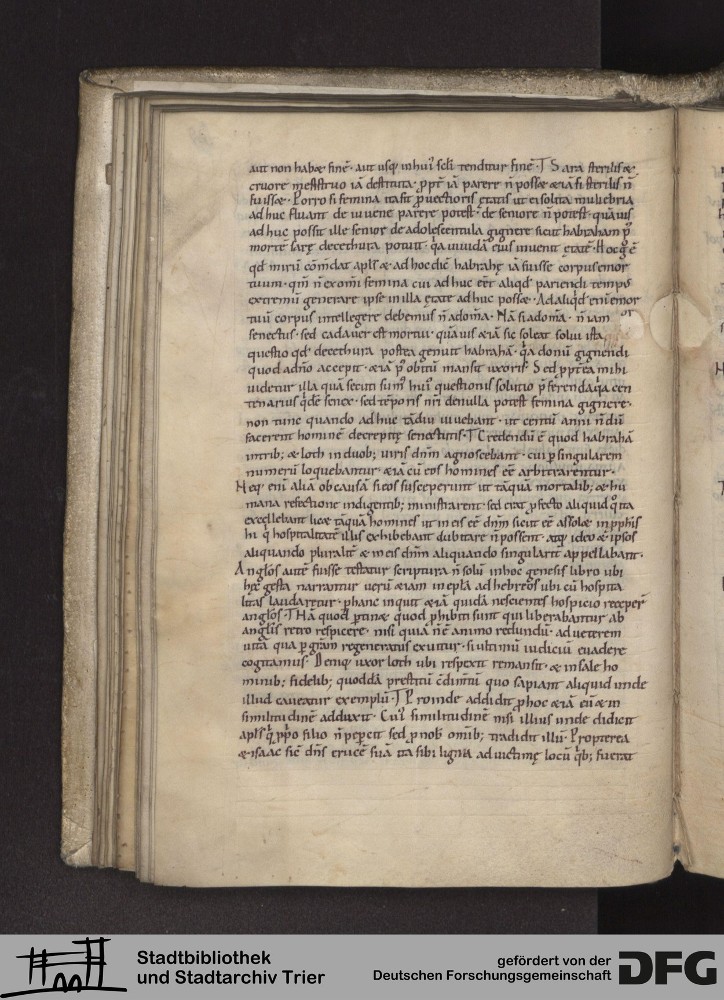 aut non habꝫ finē · aut usq; in huiˀ scli tenditur finē · T Sara sterilis &
cruore mēstruo iā destituta · ꝓpt̄ iā parere n̄ possꝫ &iā si sterilis n̄
fuissꝫ · Porro si femina ita sit ꝓuectioris ętatis ut ei solita muliebria
adhuc fluant de iuuene parere potest · de seniore n̄ potest · quāuis
adhuc possit ille senior de adolescentula gignere sicut habraham p̄
mortē sarę decethura potuit · q̇a uiuidā eius inuenit ętatē · Hoc g̊ ē
qd̄ mirū cōmdat apl̄s & · ad hoc dic̄ habrahę iā fuisse corpus emor
tuum · qm̄ n̄ ex omi femina cui adhuc eēt aliqd̄ pariendi temp̄s
extremū generare ipse in illa ętate adhuc possꝫ · Ad aliq̇d enī emor
tuū corpus intellegere debemus n̄ ad om̄a · Nā si ad om̄a · n̄ iam
senectus · sed cadauer est mortui · quāuis &iā sic soleat solui ista
questio qd̄ · decethura postea genuit habrahā · q̇a donū gignendi
quod a dn̄o accepit · &iā p̄ obitū mansit uxoris · Sed ꝓpt̄ea mihi
uidetur illa quā secuti sum̄ huiˀ questionis solutio p̄ferenda q̇a cen
tenarius q̇dē senex · sed tēporis nr̄i de nulla potest femina gignere ·
non tunc quando adhuc tādiu uiuebant · ut centū anni n̄dū
facerent hominē decrepitę senectutis · T Credendū ē quod habrahā
in trib; & loth in duob; uiris dn̄m agnoscebant · cui ꝑ singularem
numerū loquebantur · &iā cū eos homines eē arbitrarentur ·
Neq; enī aliā ob causā sic eos susceperunt ut tāquā mortalib; & hu
mana refectione indigentib; ministrarent · sed erat ꝓfecto aliquid q̊ ita
excellebant lic& tāquā homines ut in eis eē dn̄m sicut eē assol& in ꝓph̄is
hi q̇ hospitalitatē illis exhibebant dubitare n̄ possent · atq; ideo & ipsos
aliquando pluralit̄ & in eis dn̄m aliquando singularit̄ appellabant ·
Anglos autē fuisse testatur scriptura n̄ solū in hoc genesis libro ubi
hęc gesta narrantur uerū &iam in ep̄la ad hebreos ubi cū hospita
litas laudaretur · ꝑ hanc inquit &iā quidā nescientes hospicio receper̄
anglos · T Hā quod ꝑtin& quod ꝓhibiti sunt qui liberabantur ab
anglis retro respicere · nisi quia n̄ ē animo redundū · ad ueterem
uitā qua ꝑ grām regeneratus exuitur · si ultimū iudiciū euadere
cogitamus · Deniq; uxor loth ubi respexit remansit · & in sale ho
minib; fidelib; quoddā prestitū c̄dim̄tū quo sapiant aliquid unde
illud caueatur exemplū · T Proinde addidit ꝓ hoc &iā eū & in
similitudinē adduxit · Cuiˀ similitudinē nisi illius unde didicit
apl̄s q̇ ꝓprio filio n̄ peꝑcit sed ꝓ nob̄ omīb; tradidit illū · Propterea
& isaac sic̄ dn̄s crucē suā ita sibi ligna ad uictimę locū q̇b; fuerat
Stadtbibliothek
und Stadtarchiv Trier
gefördert von der
Deutschen Forschungsgemeinschaft
DFG